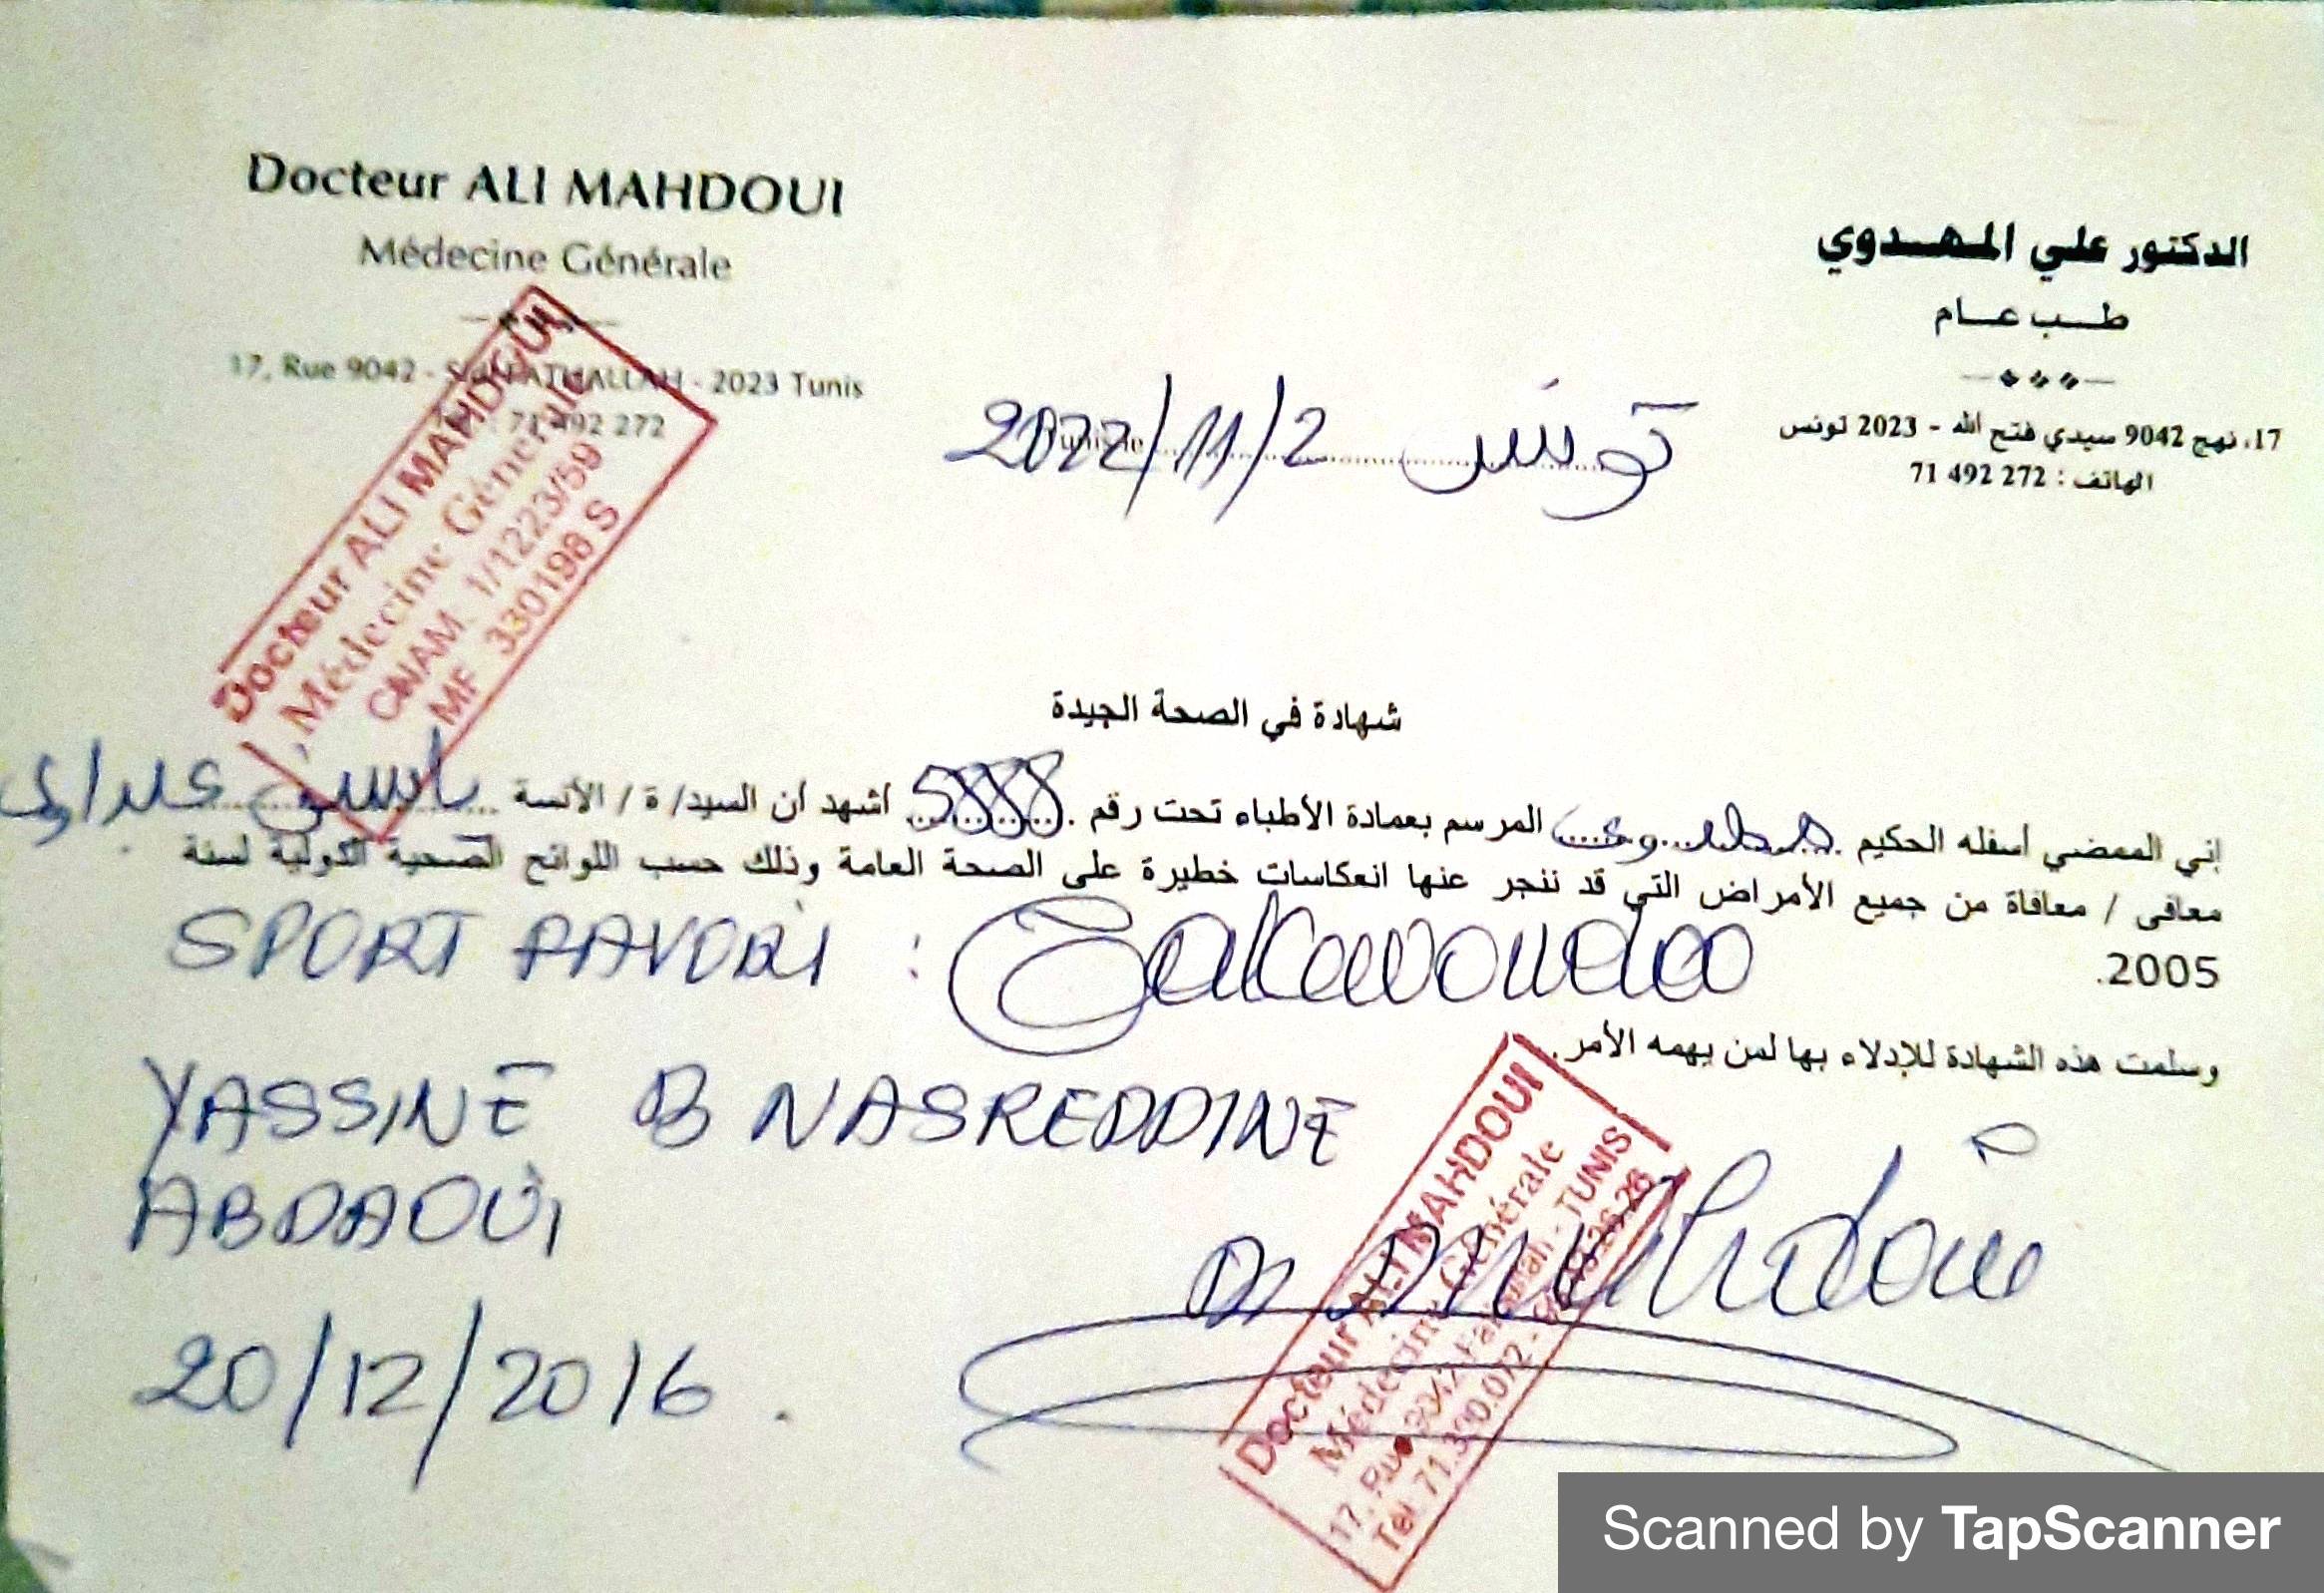 Docteur ALI MAHDOUI
Médecine Générale
17, Rue 9042 - Sidi FATHALLAH - 2023 Tunis
: 71 492 272
الدكتور علي المهدوي
طب عام
17، نهج 9042 سيدي فتح الله - 2023 تونس
الهاتف : 272 492 71
Docteur ALI MAHDOUI
Médecine Générale
CNAM 1/1223/59
MF 330198 S
تونس 2/11/2022
شهادة في الصحة الجيدة
إني الممضي أسفله الحكيم المرسم بعمادة الأطباء تحت رقم 5888 أشهد أن السيد/ ة / الآنسة ياسين عبداوي
معافى / معافاة من جميع الأمراض التي قد تنجر عنها انعكاسات خطيرة على الصحة العامة وذلك حسب اللوائح الصحية الدولية لسنة
2005.
SPORT FAVORI : Taekwondo
وسلمت هذه الشهادة للإدلاء بها لمن يهمه الأمر.
YASSINE B NASREDDINE
ABDAOUI
20/12/2016.
Dr Mahdoui
Docteur ALI MAHDOUI
Médecine Générale
17, Rue 9042 Fathallah - TUNIS
Tél 71.390.072 -
Scanned by TapScanner